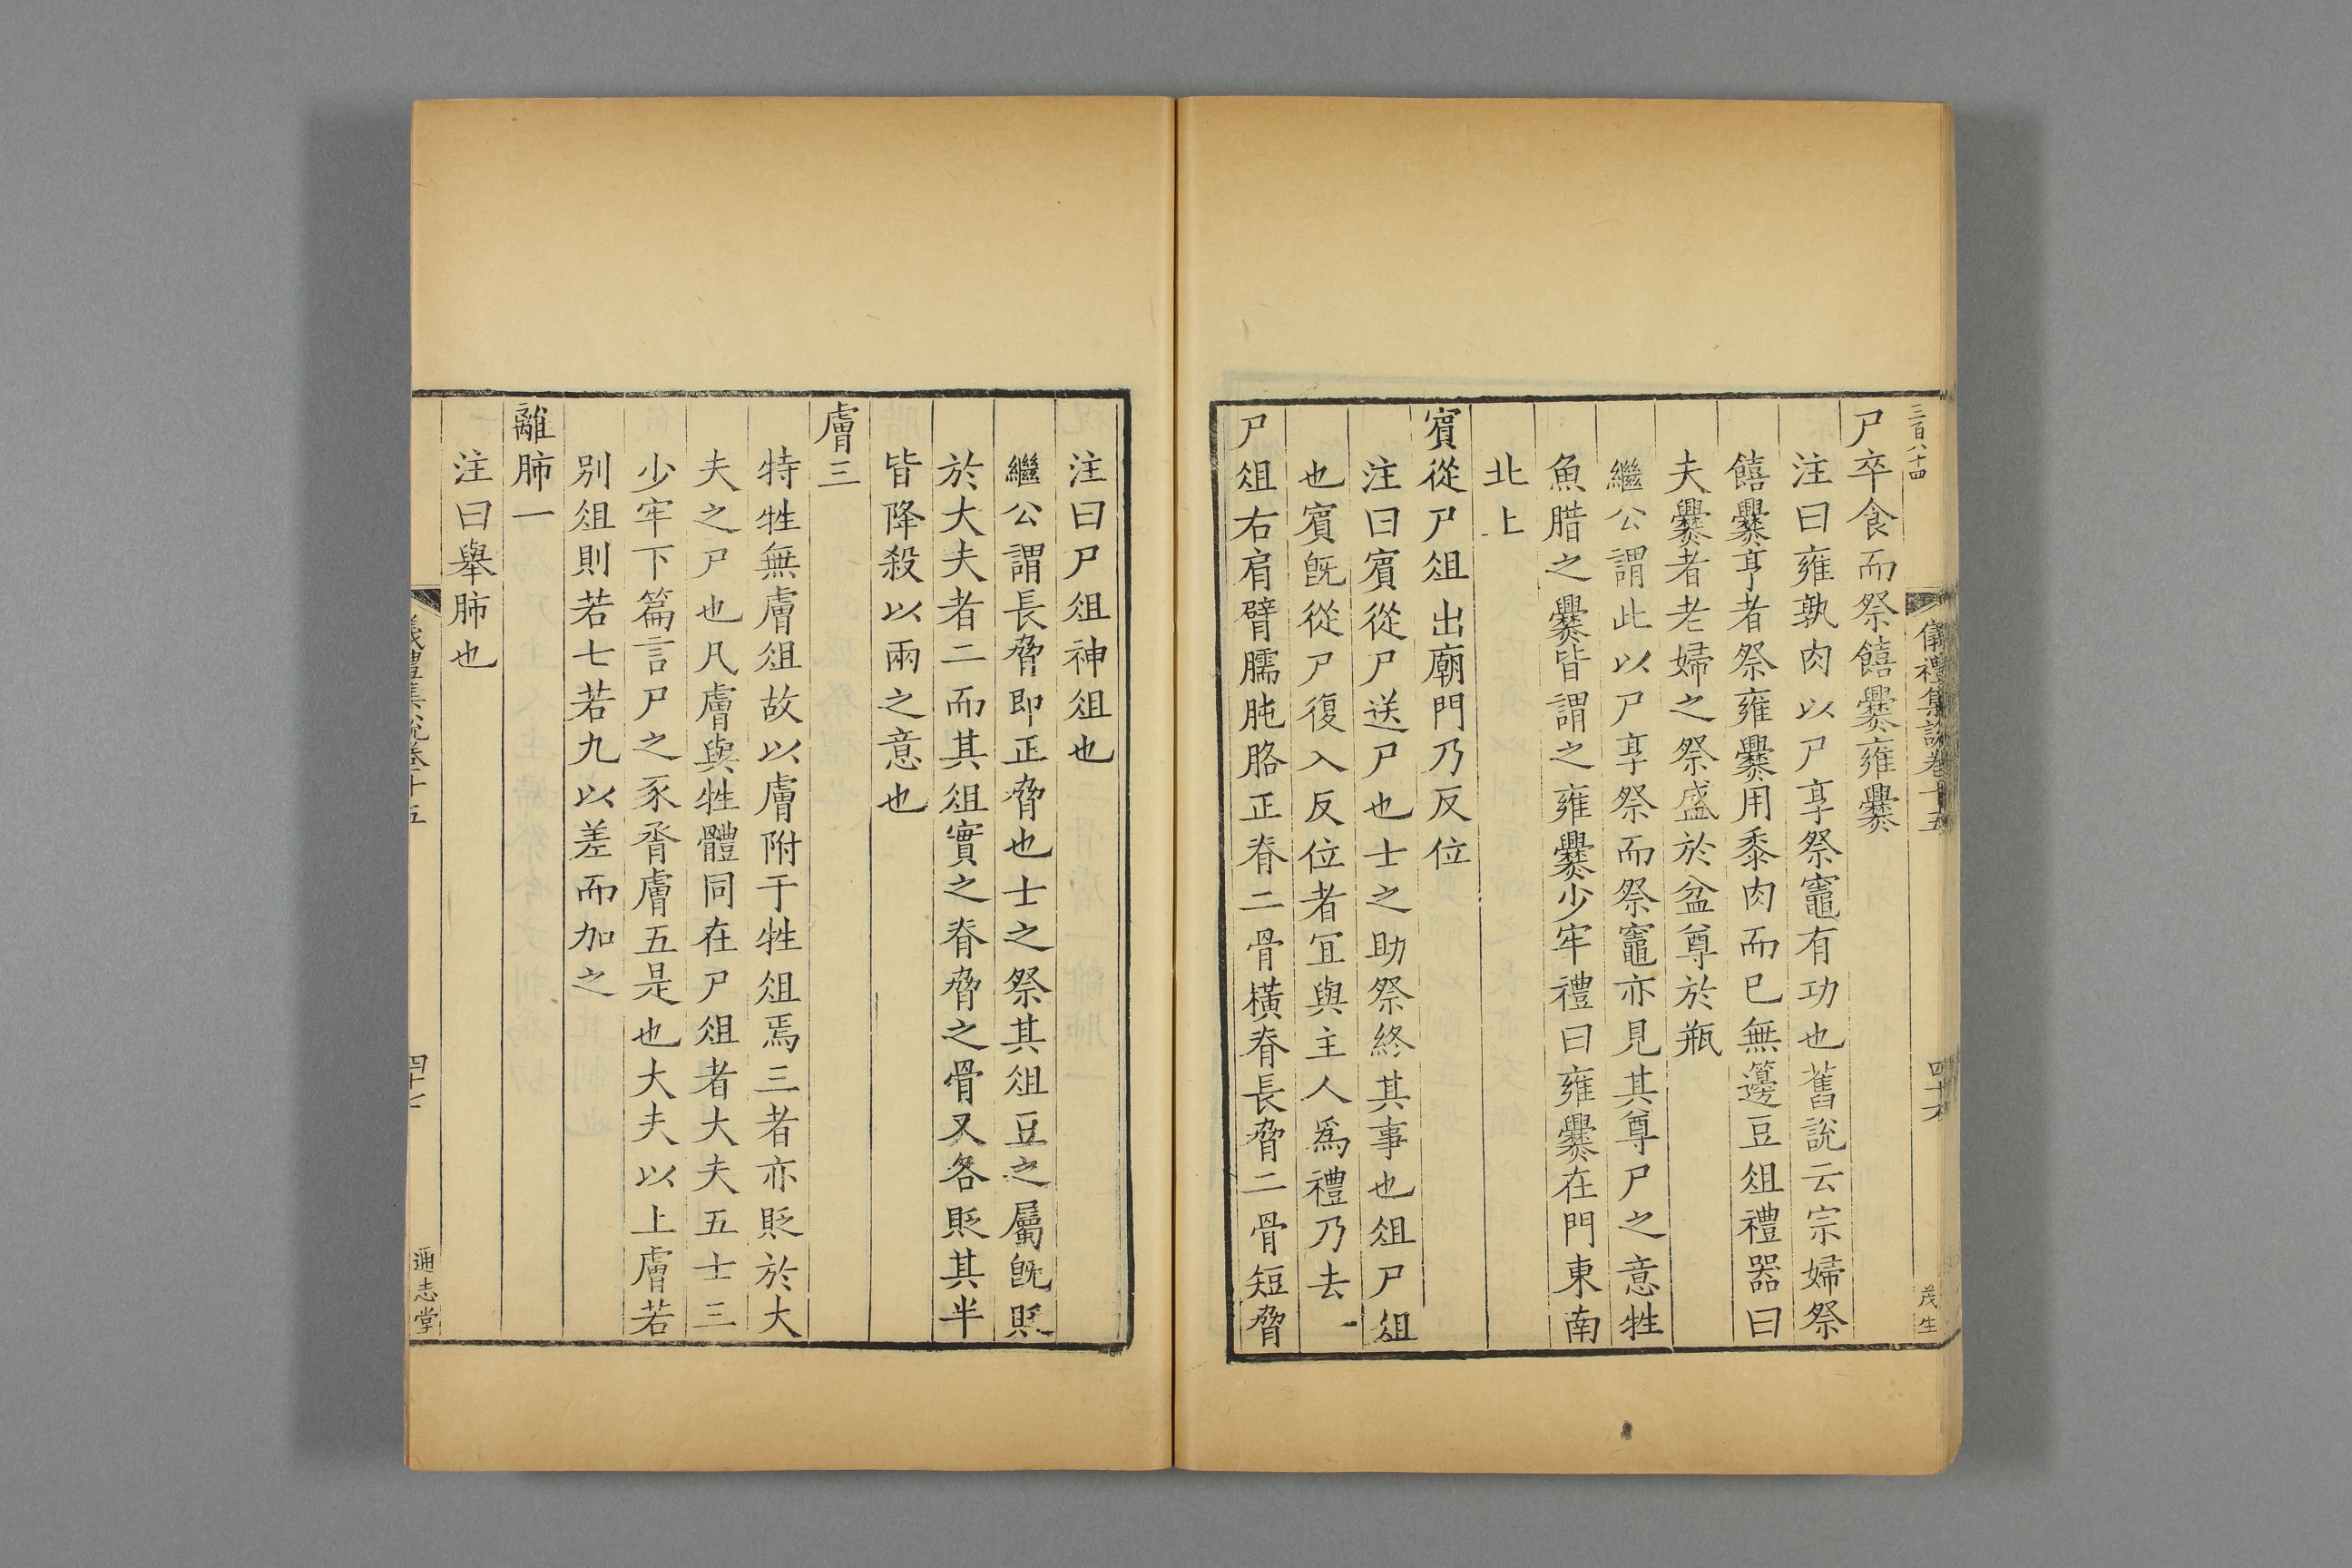 三百八十四
儀禮集說卷十五
四十六
茂生
尸卒食而祭饎爨雍爨
注曰雍孰肉以尸享祭竈有功也舊說云宗婦祭
饎爨亨者祭雍爨用黍肉而已無籩豆俎禮器曰
夫爨者老婦之祭盛於盆尊於瓶
繼公謂此以尸享祭而祭竈亦見其尊尸之意牲
魚腊之爨皆謂之雍爨少牢禮曰雍爨在門東南
北上
賔從尸俎出廟門乃反位
注曰賔從尸送尸也士之助祭終其事也俎尸俎
也賔旣從尸復入反位者宜與主人爲禮乃去
尸俎右肩臂臑肫胳正脊二骨橫脊長脅二骨短脅
注曰尸俎神俎也
繼公謂長脅即正脅也士之祭其俎豆之屬旣貶
於大夫者二而其俎實之脊脅之骨又各貶其半
皆降殺以兩之意也
膚三
特牲無膚俎故以膚附于牲俎焉三者亦貶於大
夫之尸也凡膚與牲體同在尸俎者大夫五士三
少牢下篇言尸之豕脀膚五是也大夫以上膚若
別俎則若七若九以差而加之
離肺一
注曰舉肺也
儀禮集說卷十五
四十七
通志堂